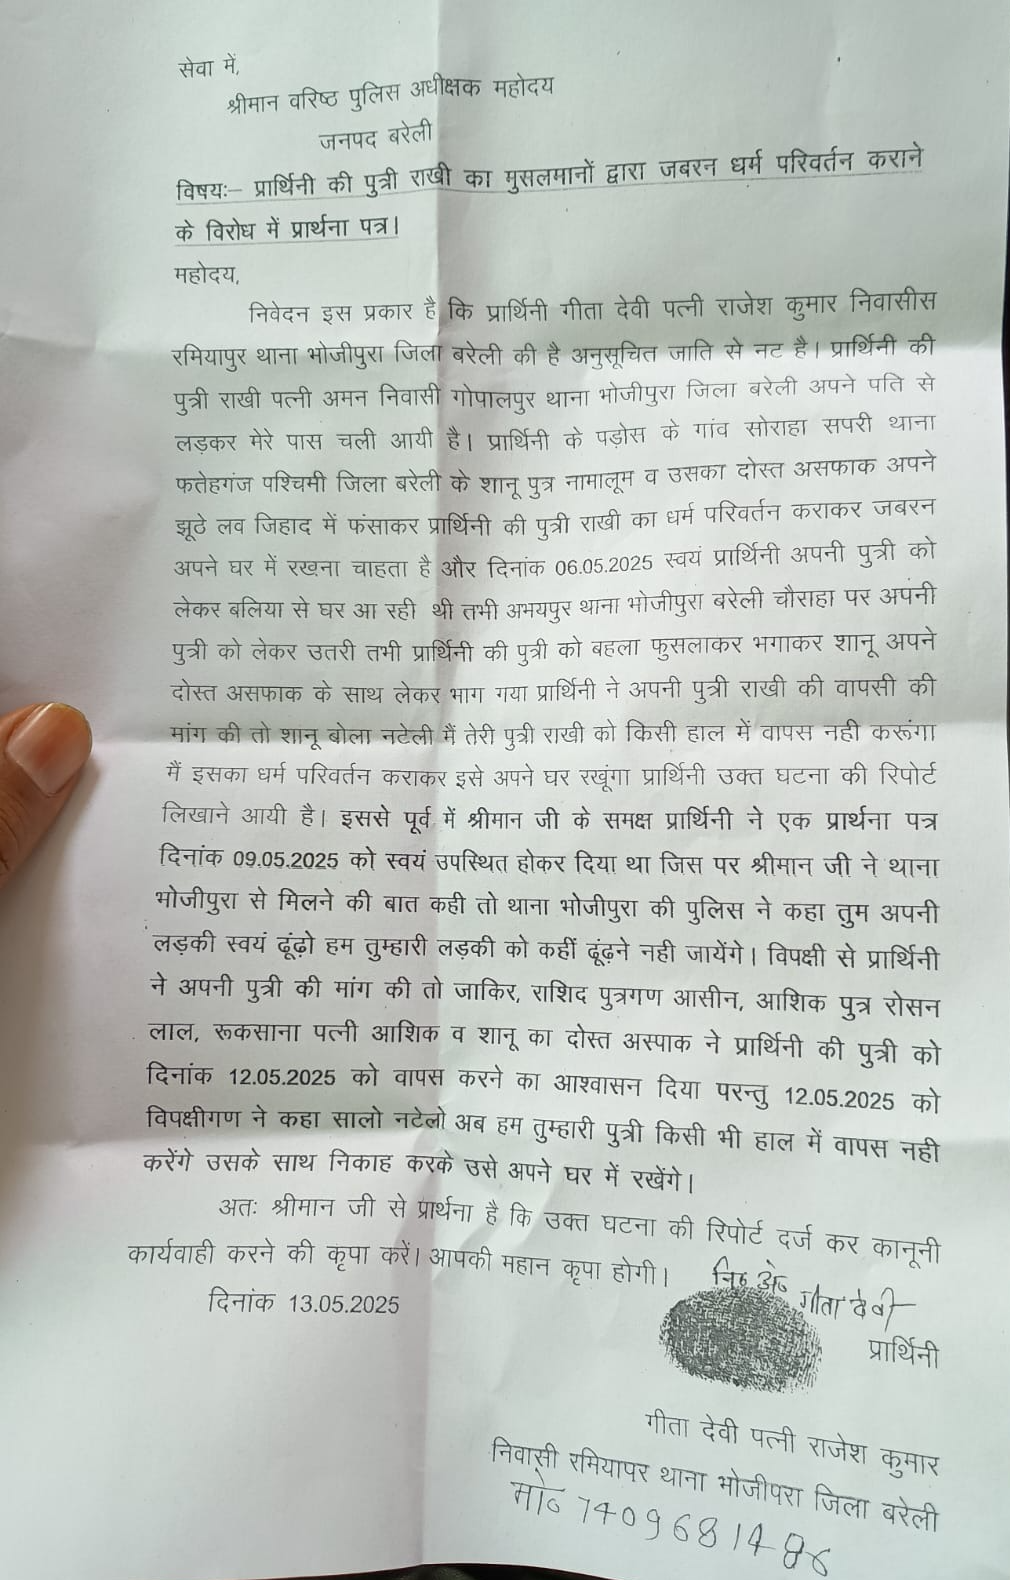 सेवा में,
श्रीमान वरिष्ठ पुलिस अधीक्षक महोदय
जनपद बरेली
विषयः– प्रार्थिनी की पुत्री राखी का मुसलमानों द्वारा जबरन धर्म परिवर्तन कराने
के विरोध में प्रार्थना पत्र।
महोदय,
निवेदन इस प्रकार है कि प्रार्थिनी गीता देवी पत्नी राजेश कुमार निवासीस
रमियापुर थाना भोजीपुरा जिला बरेली की है अनुसूचित जाति से नट है। प्रार्थिनी की
पुत्री राखी पत्नी अमन निवासी गोपालपुर थाना भोजीपुरा जिला बरेली अपने पति से
लड़कर मेरे पास चली आयी है। प्रार्थिनी के पड़ोस के गांव सोराहा सपरी थाना
फतेहगंज पश्चिमी जिला बरेली के शानू पुत्र नामालूम व उसका दोस्त असफाक अपने
झूठे लव जिहाद में फंसाकर प्रार्थिनी की पुत्री राखी का धर्म परिवर्तन कराकर जबरन
अपने घर में रखना चाहता है और दिनांक 06.05.2025 स्वयं प्रार्थिनी अपनी पुत्री को
लेकर बलिया से घर आ रही थी तभी अभयपुर थाना भोजीपुरा बरेली चौराहा पर अपनी
पुत्री को लेकर उतरी तभी प्रार्थिनी की पुत्री को बहला फुसलाकर भगाकर शानू अपने
दोस्त असफाक के साथ लेकर भाग गया प्रार्थिनी ने अपनी पुत्री राखी की वापसी की
मांग की तो शानू बोला नटेली मैं तेरी पुत्री राखी को किसी हाल में वापस नही करूंगा
मैं इसका धर्म परिवर्तन कराकर इसे अपने घर रखूंगा प्रार्थिनी उक्त घटना की रिपोर्ट
लिखाने आयी है। इससे पूर्व में श्रीमान जी के समक्ष प्रार्थिनी ने एक प्रार्थना पत्र
दिनांक 09.05.2025 को स्वयं उपस्थित होकर दिया था जिस पर श्रीमान जी ने थाना
भोजीपुरा से मिलने की बात कही तो थाना भोजीपुरा की पुलिस ने कहा तुम अपनी
लड़की स्वयं ढूंढ़ो हम तुम्हारी लड़की को कहीं ढूंढ़ने नही जायेंगे। विपक्षी से प्रार्थिनी
ने अपनी पुत्री की मांग की तो जाकिर, राशिद पुत्रगण आसीन, आशिक पुत्र रोसन
लाल, रूकसाना पत्नी आशिक व शानू का दोस्त अस्पाक ने प्रार्थिनी की पुत्री को
दिनांक 12.05.2025 को वापस करने का आश्वासन दिया परन्तु 12.05.2025 को
विपक्षीगण ने कहा सालो नटेलो अब हम तुम्हारी पुत्री किसी भी हाल में वापस नही
करेंगे उसके साथ निकाह करके उसे अपने घर में रखेंगे।
अतः श्रीमान जी से प्रार्थना है कि उक्त घटना की रिपोर्ट दर्ज कर कानूनी
कार्यवाही करने की कृपा करें। आपकी महान कृपा होगी।
नि० अं० गीता देवी
दिनांक 13.05.2025
प्रार्थिनी
गीता देवी पत्नी राजेश कुमार
निवासी रमियापर थाना भोजीपरा जिला बरेली
मो०